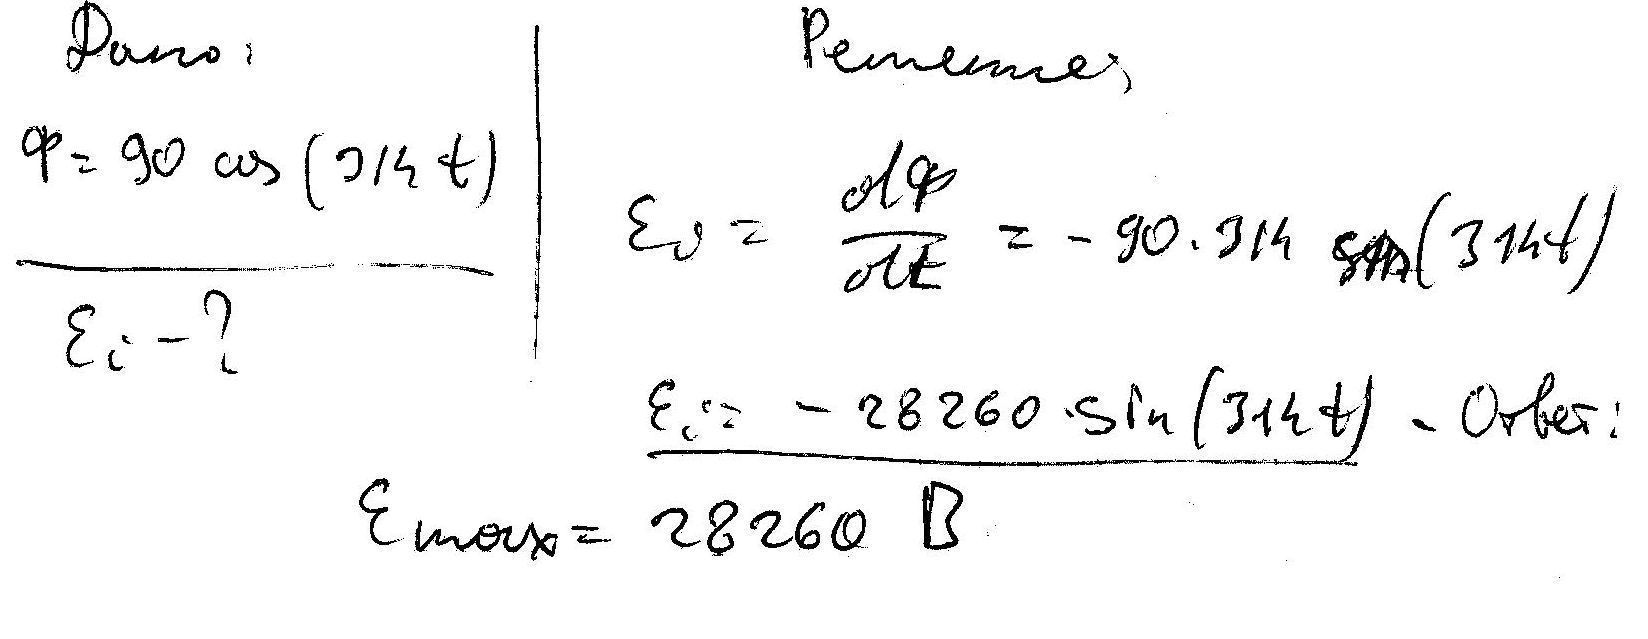 Дано:
Φ = 90 cos (314 t)
εi - ?
Решение,
εi = dΦ/dt = - 90 · 314 sin (314t)
εi = - 28260 · sin (314 t) - Ответ:
εmax = 28260 В